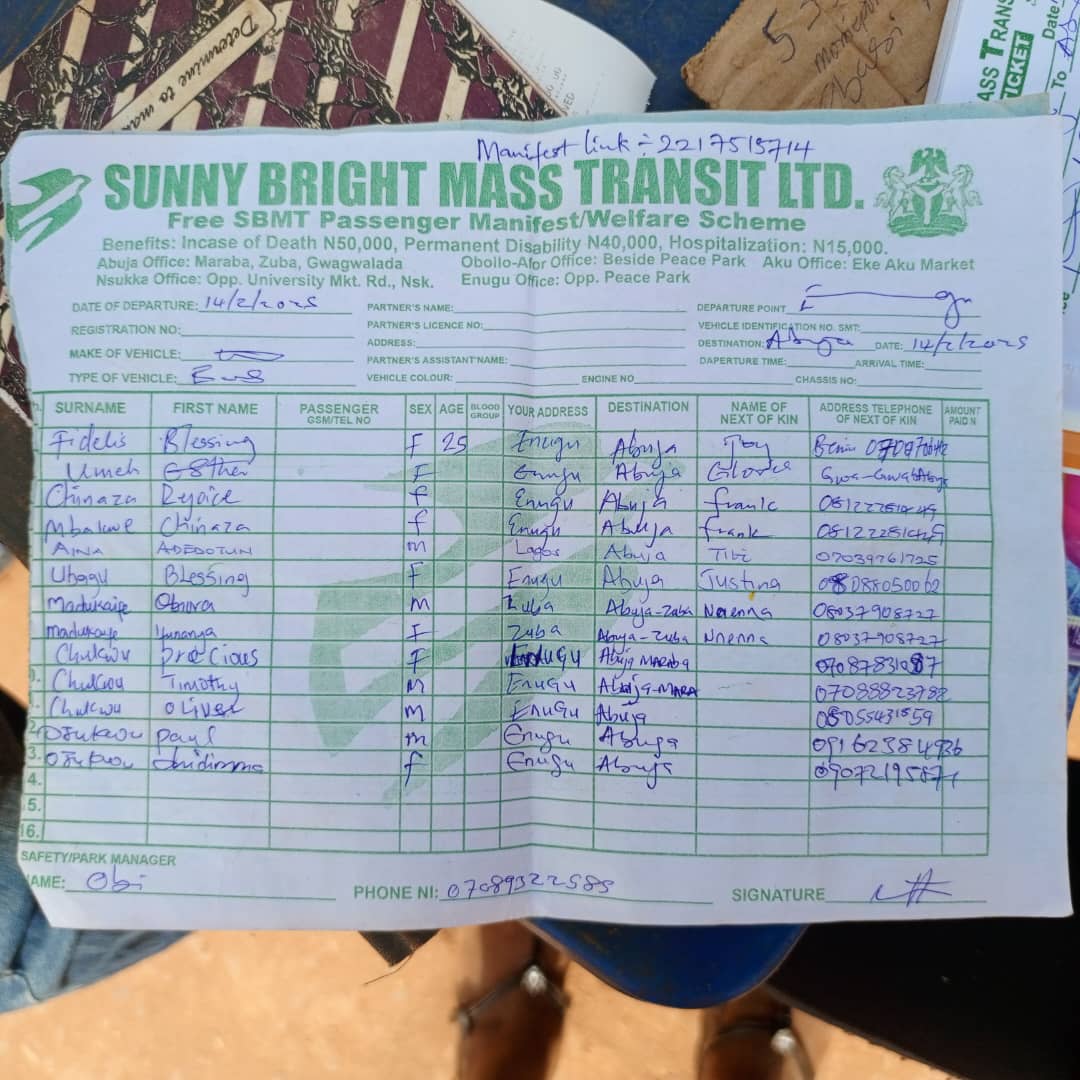 Determine to ma
5 3
ASS TRANS
TICKET
Date
To
Manifest link ÷ 2217515714
SUNNY BRIGHT MASS TRANSIT LTD.
Free SBMT Passenger Manifest/Welfare Scheme
Benefits: Incase of Death N50,000, Permanent Disability N40,000, Hospitalization: N15,000.
Abuja Office: Maraba, Zuba, Gwagwalada Obollo-Afor Office: Beside Peace Park Aku Office: Eke Aku Market
Nsukka Office: Opp. University Mkt. Rd., Nsk. Enugu Office: Opp. Peace Park
DATE OF DEPARTURE: 14/2/2025 PARTNER'S NAME: DEPARTURE POINT
REGISTRATION NO: PARTNER'S LICENCE NO: VEHICLE IDENTIFICATION NO. SMT:
MAKE OF VEHICLE: ADDRESS: DESTINATION: Abuja DATE: 14/2/2025
PARTNER'S ASSISTANT'NAME: DAPERTURE TIME: ARRIVAL TIME:
TYPE OF VEHICLE: Bus VEHICLE COLOUR: ENGINE NO CHASSIS NO:
SURNAME FIRST NAME PASSENGER GSM/TEL NO SEX AGE BLOOD GROUP YOUR ADDRESS DESTINATION NAME OF NEXT OF KIN ADDRESS TELEPHONE OF NEXT OF KIN AMOUNT PAID N
Fidelis Blessing F 25 Enugu Abuja Joy Benin
Umeh Esther F Enugu Abuja
Chinaza Rejoice f Enugu Abuja frank
Mbakwe Chinaza f Enugu Abuja frank
AINA ADEDOTUN m Lagos Abuja Tibi 07039761725
Ubagu Blessing F Enugu Abuja Justina 08088050062
m Zuba Abuja-Zuba Nnenna 08037908727
Ifunanya F Zuba Abuja-Zuba Nnenna 08037908727
Chukwu precious F Enugu Abuja MARABA
Chukwu Timothy m Enugu Abuja-MARA 07088823782
Chukwu oliver m Enugu Abuja
paul m Enugu Abuja 09162384926
3. chidimma f Enugu Abuja 09072195871
4.
5.
16.
SAFETY/PARK MANAGER
AME: Obi PHONE NI: 07089322585 SIGNATURE